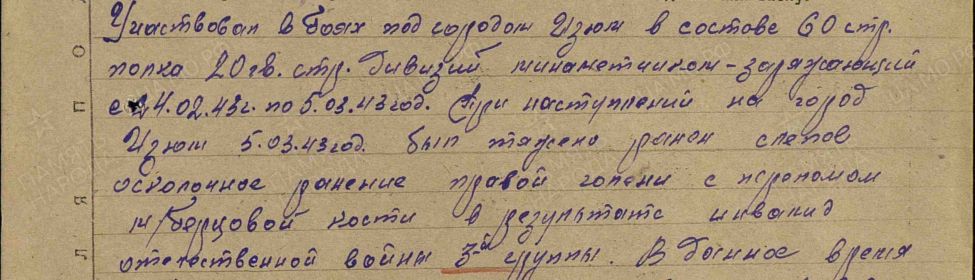 Участвовал в боях под городом Изюм в составе 60 стр.
полка 20 гв. стр. дивизий минаметчиком-заряжающий
с 24.02.43г. по 5.03.43 год. При наступлений на город
Изюм 5.03.43 год. был тяжело ранен слепое
осколочное ранение правой голени с переломом
м/берцовой кости в результате инвалид
отечественной войны 3й группы. В данное время
О
П
Я
Л